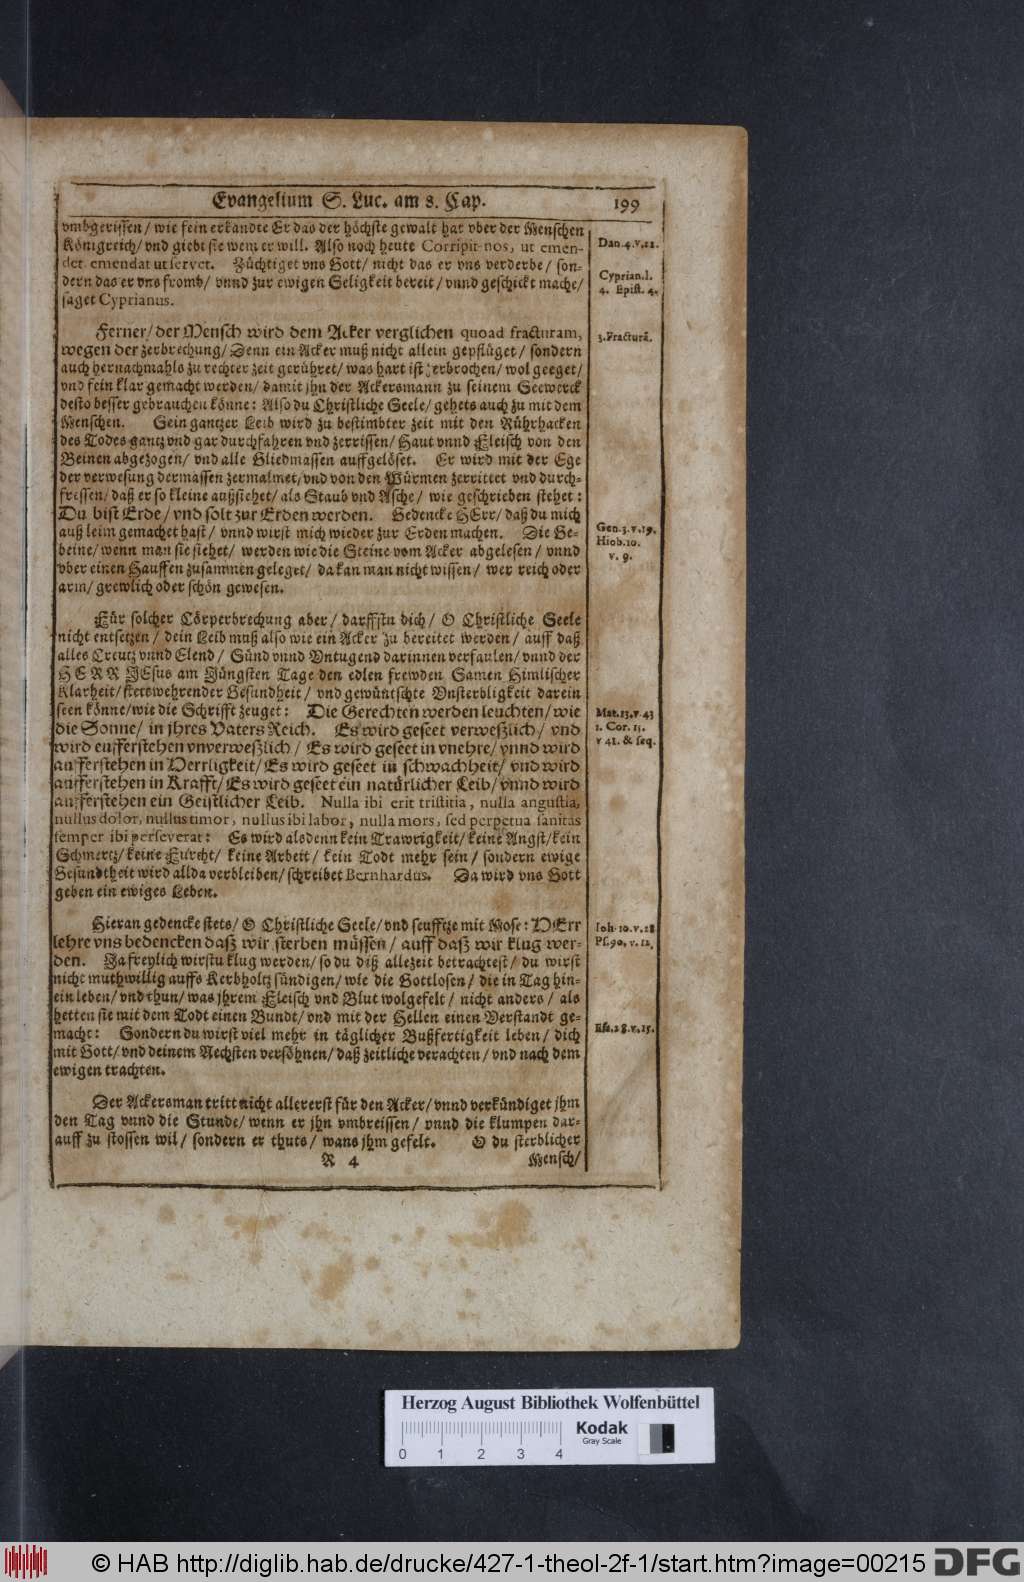 Evangelium S. Luc. am 8. Cap. 199
vmbgerissen/ wie fein erkandte Er das der höchste gewalt hat vber der Menschen
Königreich/ vnd giebt sie wem er will. Also noch heute Corripit nos, ut emen-
det, emendat ut servet. Züchtiget vns Gott/ nicht das er vns verderbe/ son-
dern das er vns fromb/ vnnd zur ewigen Seligkeit bereit/ vnnd geschickt mache/
saget Cyprianus.
Dan. 4. v. 22.
Cyprian. l.
4. Epist. 4.
Ferner/ der Mensch wird dem Acker verglichen quoad fracturam,
wegen der zerbrechung/ Denn ein Acker muß nicht allein gepflüget/ sondern
auch hernachmahls zu rechter zeit gerühret/ was hart ist zerbrochen/ wol geeget/
vnd fein klar gemacht werden/ damit jhn der Ackersmann zu seinem Seewerck
desto besser gebrauchen könne: Also du Christliche Seele/ gehets auch zu mit dem
Menschen. Sein gantzer Leib wird zu bestimbter zeit mit den Rührhacken
des Todes gantz vnd gar durchfahren vnd zerrissen/ Haut vnnd Fleisch von den
Beinen abgezogen/ vnd alle Gliedmassen auffgelöset. Er wird mit der Ege
der verwesung dermassen zermalmet/ vnd von den Würmen zerrittet vnd durch-
fressen/ daß er so kleine außsiehet/ als Staub vnd Asche/ wie geschrieben stehet:
Du bist Erde/ vnd solt zur Erden werden. Gedencke HErr/ daß du mich
auß leim gemachet hast/ vnnd wirst mich wieder zur Erden machen. Die Ge-
beine/ wenn man sie siehet/ werden wie die Steine vom Acker abgelesen/ vnnd
vber einen Hauffen zusammen geleget/ da kan man nicht wissen/ wer reich oder
arm/ grewlich oder schön gewesen.
3. Fracturã.
Gen. 3. v. 19.
Hiob. 10.
v. 9.
Für solcher Cörperbrechung aber/ darffstu dich/ O Christliche Seele
nicht entsetzen/ dein Leib muß also wie ein Acker zu bereitet werden/ auff daß
alles Creutz vnnd Elend/ Sünd vnnd Vntugend darinnen verfaulen/ vnnd der
HERR JEsus am Jüngsten Tage den edlen frewden Samen Himlischer
Klarheit/ stetswehrender Gesundheit/ vnd gewüntschte Vnsterbligkeit darein
seen könne/ wie die Schrifft zeuget: Die Gerechten werden leuchten/ wie
die Sonne/ in jhres Vaters Reich. Es wird geseet verweßlich/ vnd
wird aufferstehen vnverweßlich/ Es wird geseet in vnehre/ vnnd wird
aufferstehen in Herrligkeit/ Es wird geseet in schwachheit/ vnd wird
aufferstehen in Krafft/ Es wird geseet ein natürlicher Leib/ vnnd wird
aufferstehen ein Geistlicher Leib. Nulla ibi erit tristitia, nulla angustia,
nullus dolor, nullus timor, nullus ibi labor, nulla mors, sed perpetua sanitas
semper ibi perseverat: Es wird alsdenn kein Trawrigkeit/ keine Angst/ kein
Schmertz/ keine Furcht/ keine Arbeit/ kein Todt mehr sein/ sondern ewige
Gesundtheit wird allda verbleiben/ schreibet Bernhardus. Da wird vns Gott
geben ein ewiges Leben.
Mat. 13. v. 43
1. Cor. 15.
v 42. & seq.
Hieran gedencke stets/ O Christliche Seele/ vnd seufftze mit Mose: HErr
lehre vns bedencken daß wir sterben müssen/ auff daß wir klug wer-
den. Ja freylich wirstu klug werden/ so du diß allezeit betrachtest/ du wirst
nicht muthwillig auffs Kerbholtz sündigen/ wie die Gottlosen/ die in Tag hin-
ein leben/ vnd thun/ was jhrem Fleisch vnd Blut wolgefelt/ nicht anders/ als
hetten sie mit dem Todt einen Bundt/ vnd mit der Hellen einen Verstandt ge-
macht: Sondern du wirst viel mehr in täglicher Bußfertigkeit leben/ dich
mit Gott/ vnd deinem Nechsten versöhnen/ daß zeitliche verachten/ vnd nach dem
ewigen trachten.
Ioh. 10. v. 28
Ps. 90. v. 12.
Esa. 28. v. 15.
Der Ackersman tritt nicht allererst für den Acker/ vnnd verkündiget jhm
den Tag vnnd die Stunde/ wenn er jhn vmbreissen/ vnnd die klumpen dar-
auff zu stossen wil/ sondern er thuts/ wans jhm gefelt. O du sterblicher
R 4 Mensch/
Herzog August Bibliothek Wolfenbüttel
Kodak
Gray Scale
0 1 2 3 4
© HAB http://diglib.hab.de/drucke/427-1-theol-2f-1/start.htm?image=00215 DFG